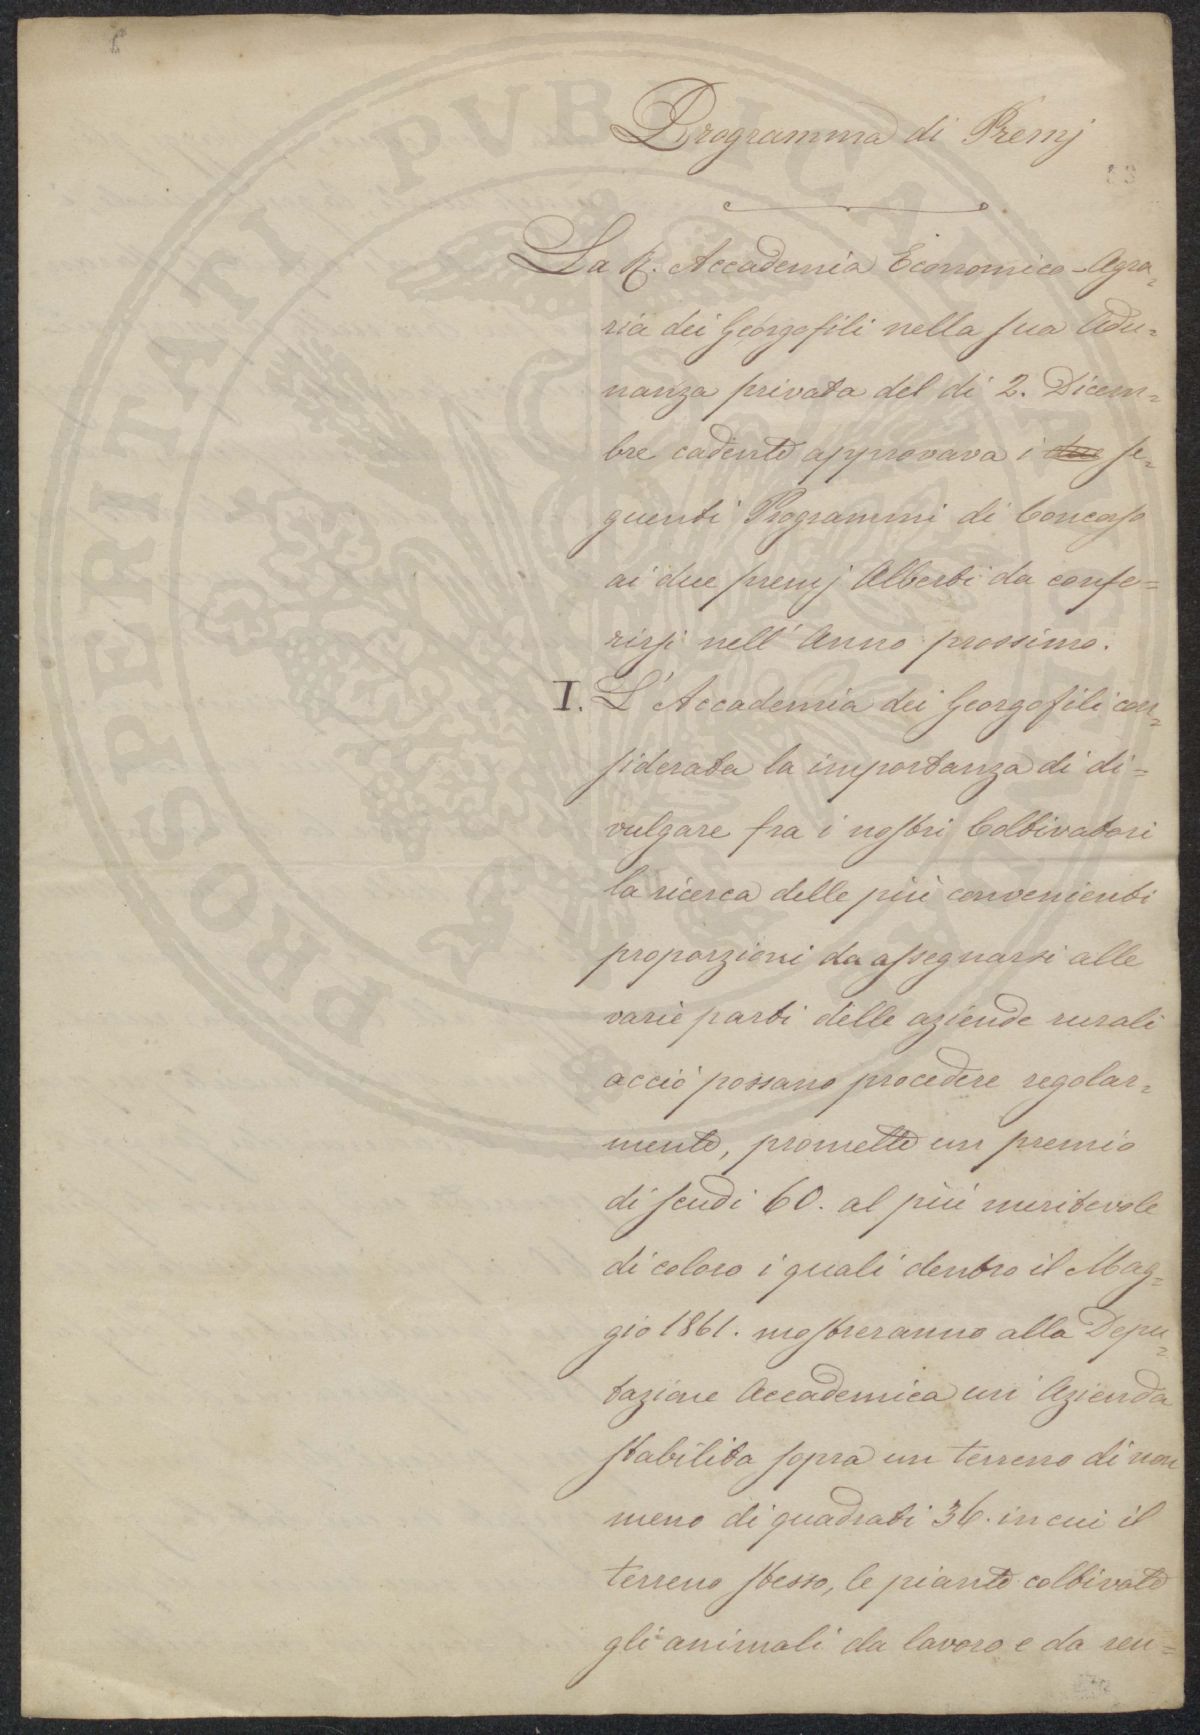 Programma di Premj
La R. Accademia Economico-Agra=
ria dei Georgofili nella sua Adu=
nanza privata del di 2. Dicem=
bre cadente approvava i due se=
guenti Programmi di Concorso
ai due premj Alberti da confe=
rirsi nell'Anno prossimo.
I. L'Accademia dei Georgofili con=
siderata la importanza di di=
vulgare fra i nostri Coltivatori
la ricerca delle più convenienti
proporzioni da assegnarsi alle
varie parti delle aziende rurali
acciò possano procedere regolar=
mente, promette un premio
di scudi 60. al più meritevole
di coloro i quali dentro il Mag=
gio 1861. mostreranno alla Depu=
tazione Accademica un'Azienda
stabilita sopra un terreno di non
meno di quadrati 36. in cui il
terreno stesso, le piante coltivate
gli animali da lavoro e da ren=
PROSPERITATI PVBLICAE